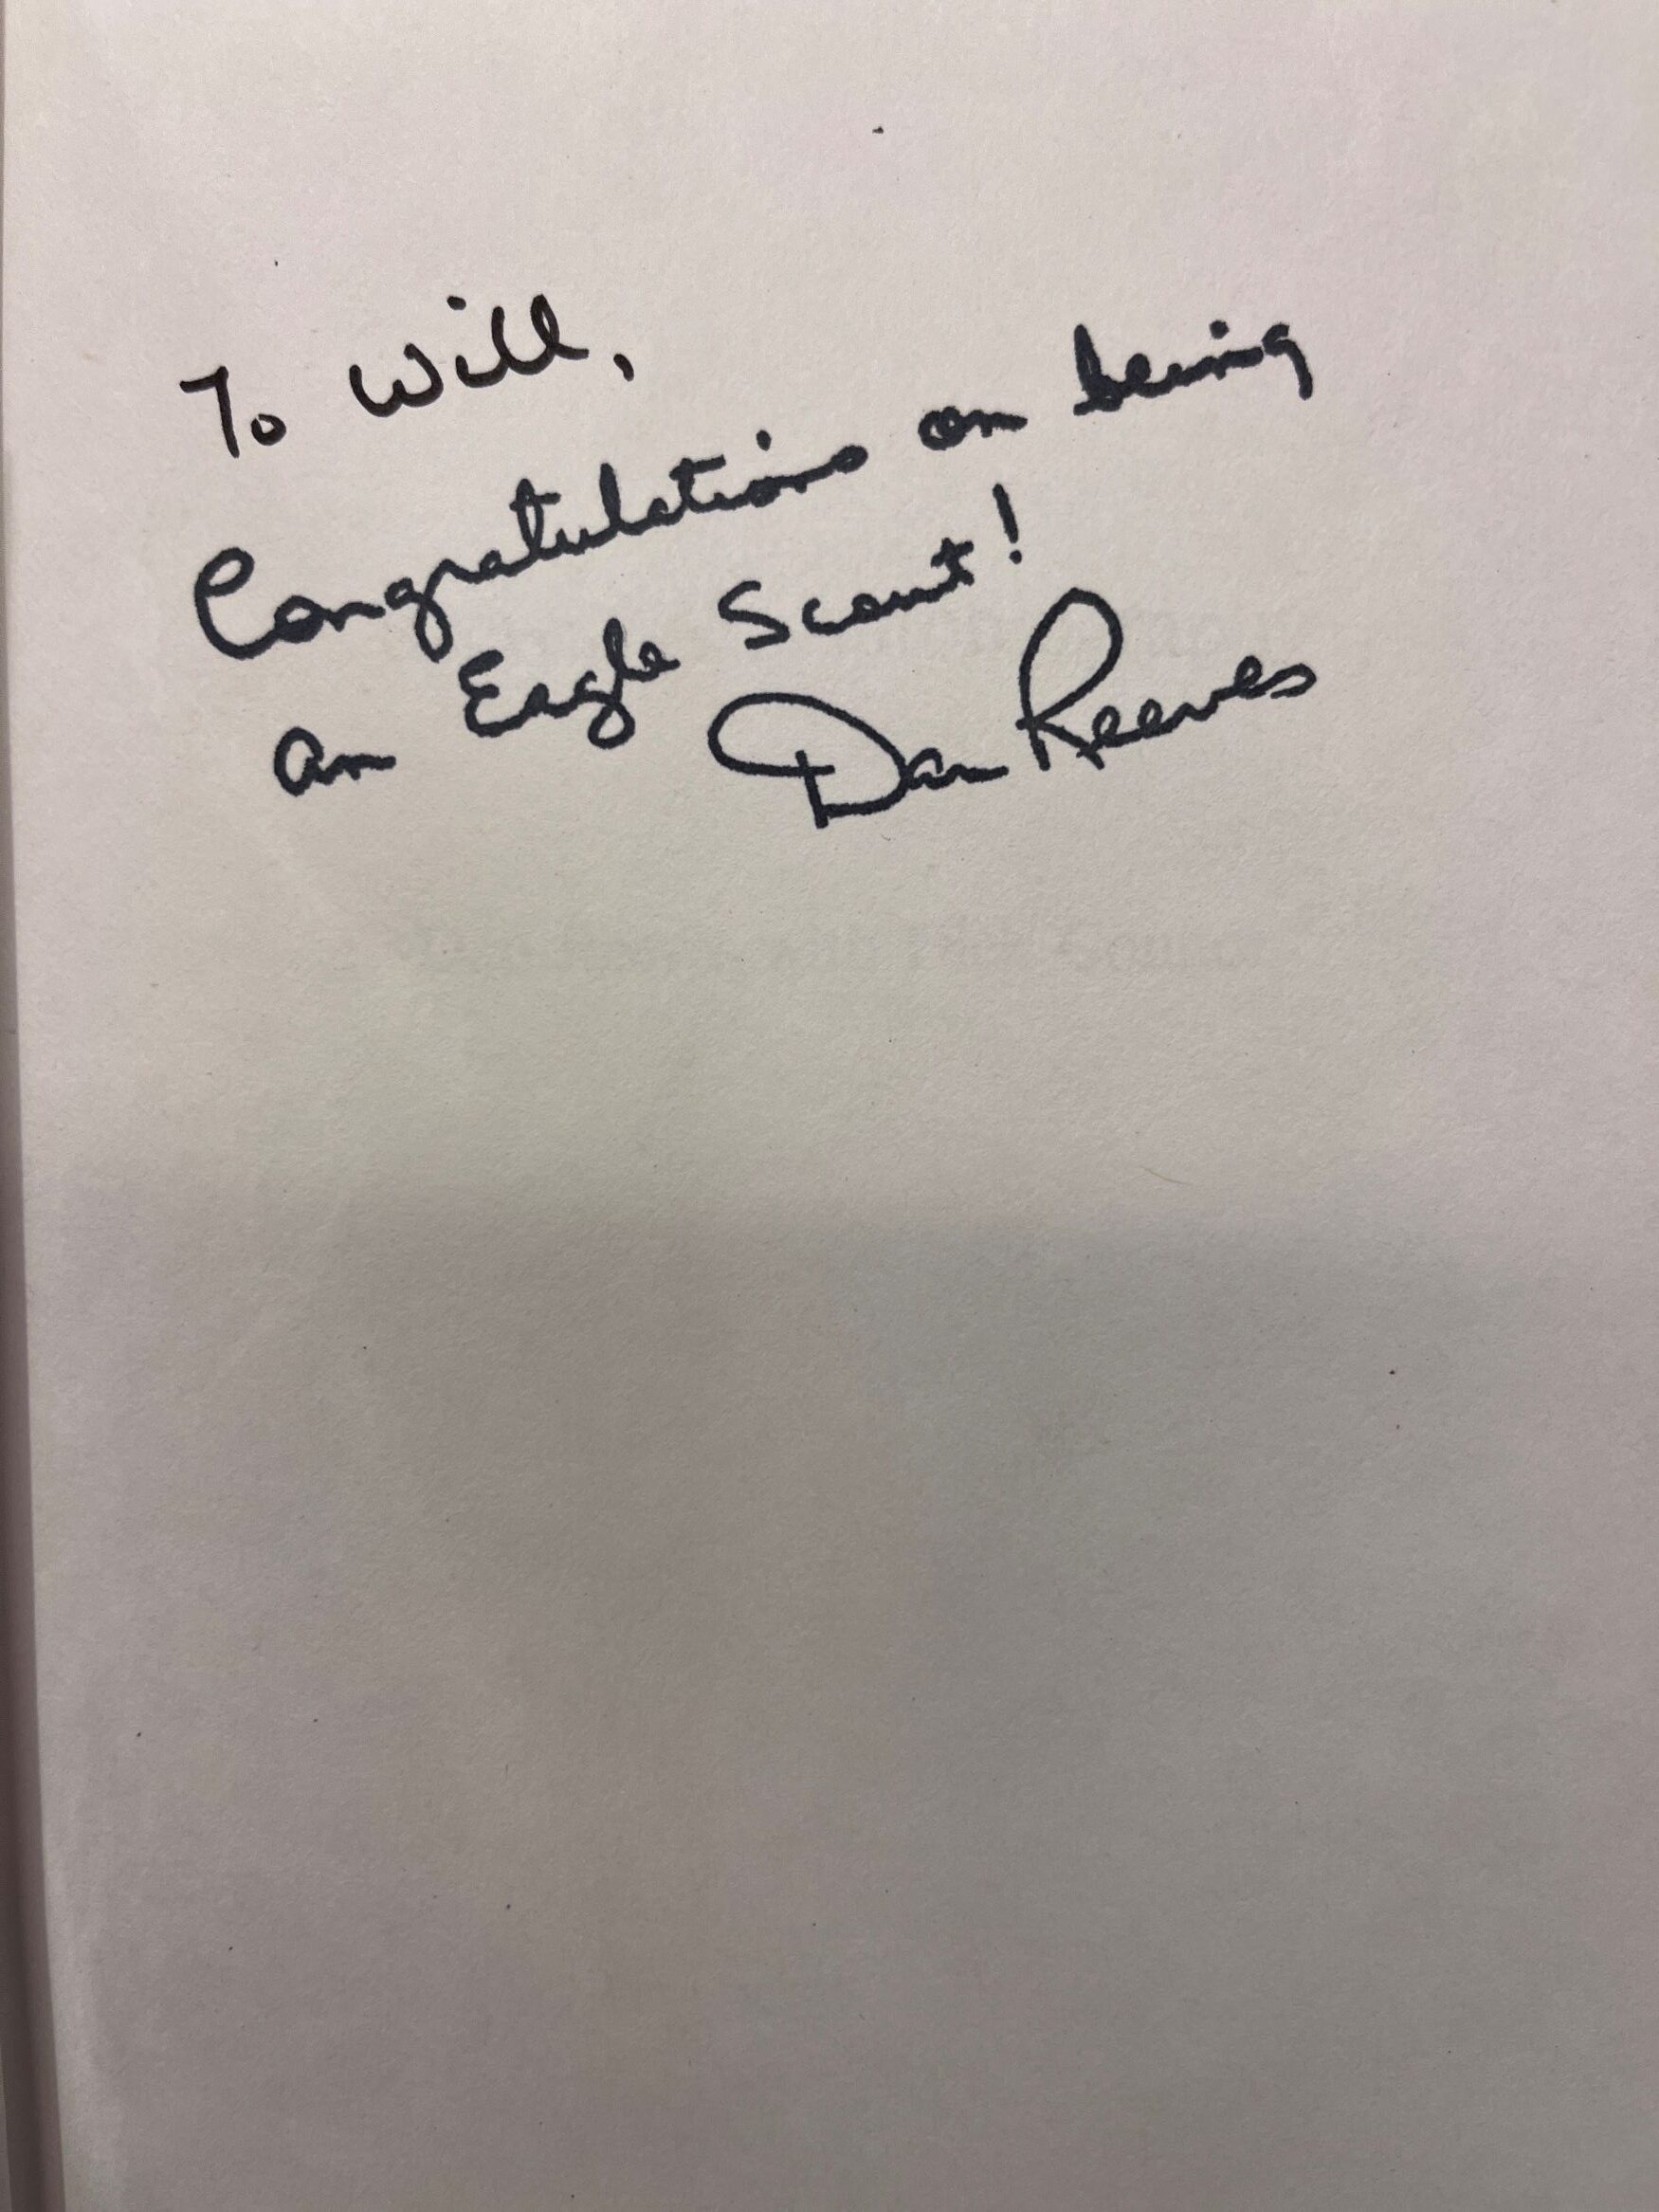 To Will,
Congratulations on being
an Eagle Scout!
Dan Reeves